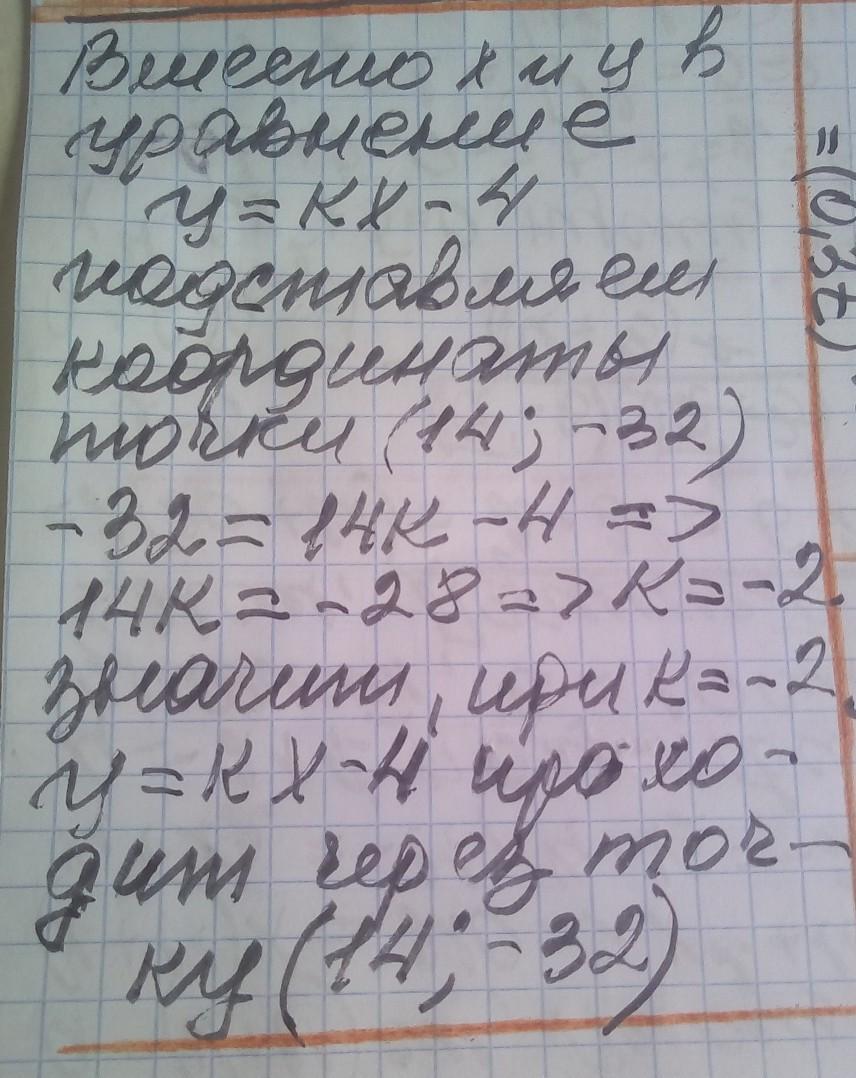 Вместо х и у в
уравнение
у = кх - 4
подставляем
координаты
точки (14; -32)
-32 = 14к - 4 =>
14к = -28 => к = -2
значит, при к = -2,
у = кх - 4 прохо-
дит через точ-
ку (14; -32)
= (0,3t)